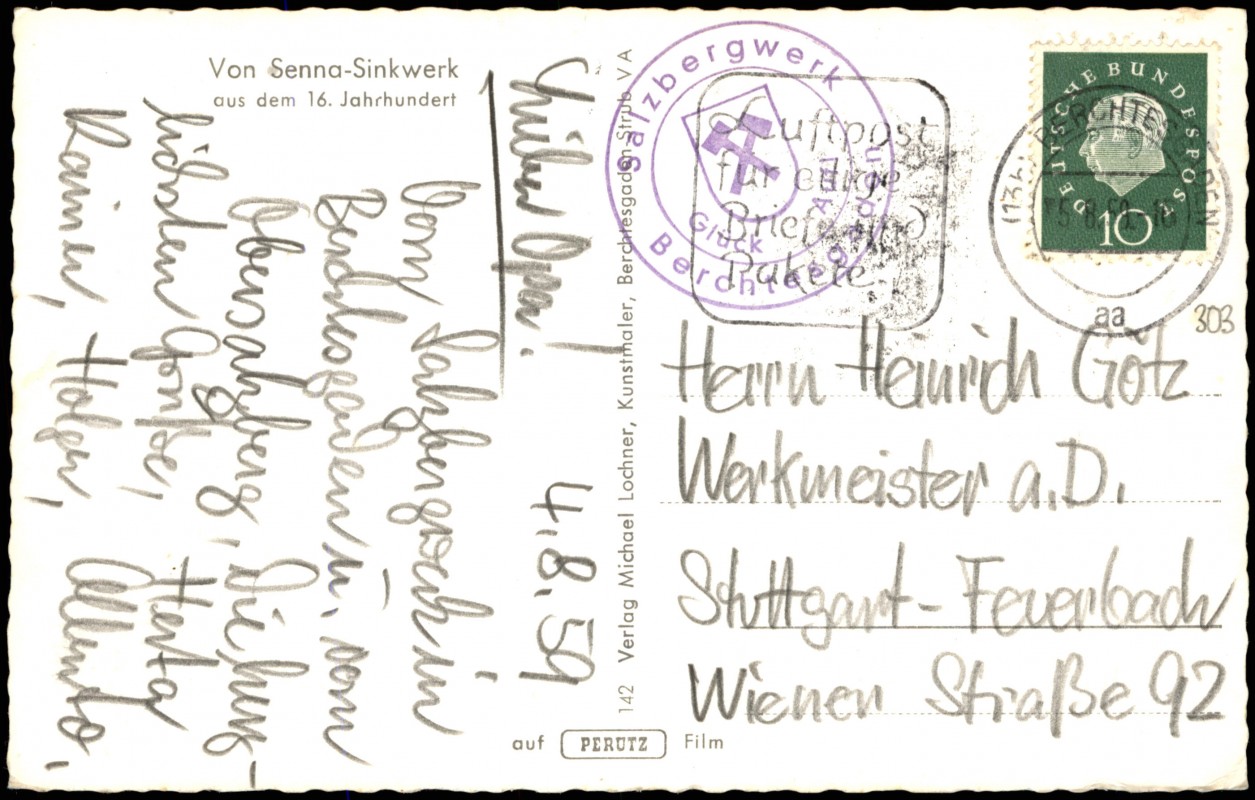 Von Senna-Sinkwerk
aus dem 16. Jahrhundert
4.8.59
Lieber Opa!
Vom Salzbergwerk in
Berchtesgaden u. vom
Obersalzberg, die herz-
lichsten Grüße,
Herta
Rainer, Holger,
142 Verlag Michael Lochner, Kunstmaler, Berchtesgaden-Strub VA
auf PERUTZ Film
Salzbergwerk
Berchtesgaden
Glück Auf!
Luftpost
für eilige
Briefe und
Pakete
DEUTSCHE BUNDESPOST
10
(13b) BERCHTESGADEN
aa
303
Herrn Heinrich Götz
Werkmeister a.D.
Stuttgart-Feuerbach
Wiener Straße 92